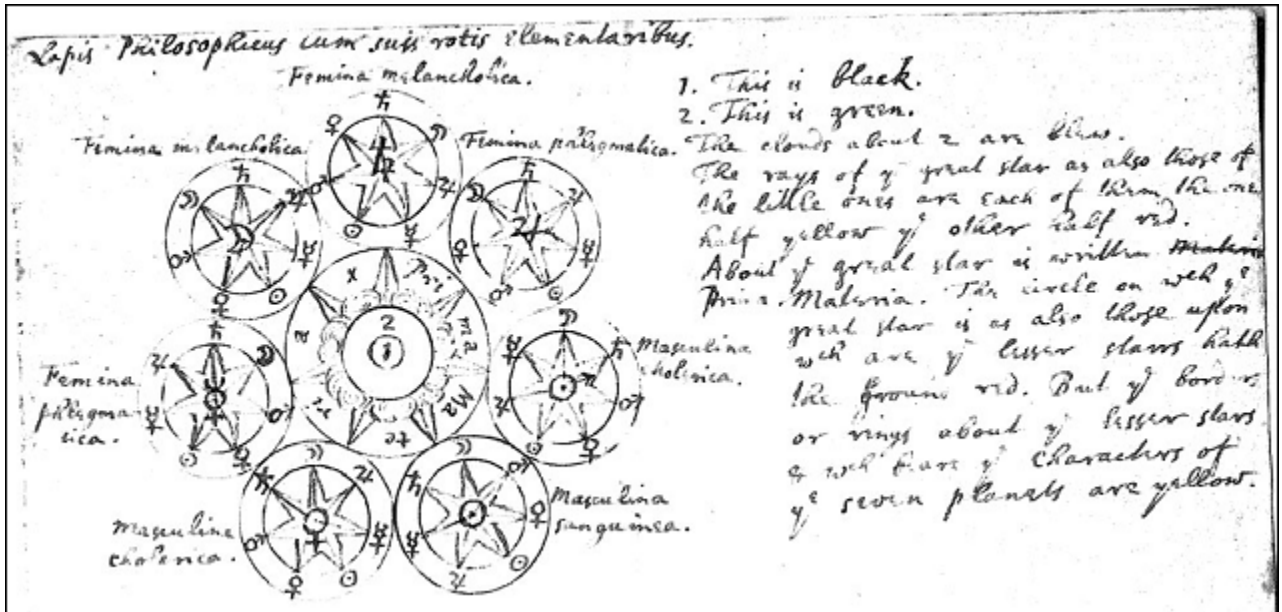 Lapis Philosophicus cum suis rotis elementaribus.
Femina melancholica.
Femina melancholica
Femina phlegmatica.
Femina
phlegma
tica.
Masculina
cholerica.
Masculina
cholerica.
Masculina
sanguinea.
Pri
ma
Ma
te
ri
a
x
2
1
1. This is black.
2. This is green.
The clouds about 2 are blew.
The rays of yͤ great star as also those of
the little ones are each of them the one
half yellow yͤ other half red.
About yͤ great star is written Materia
Prima Materia. The circle on wch yͤ
great star is as also those upon
wch are yͤ lesser starrs hath
the ground red. But yͤ borders
or rings about yͤ lesser stars
& wch beare yͤ characters of
yͤ seven planets are yellow.